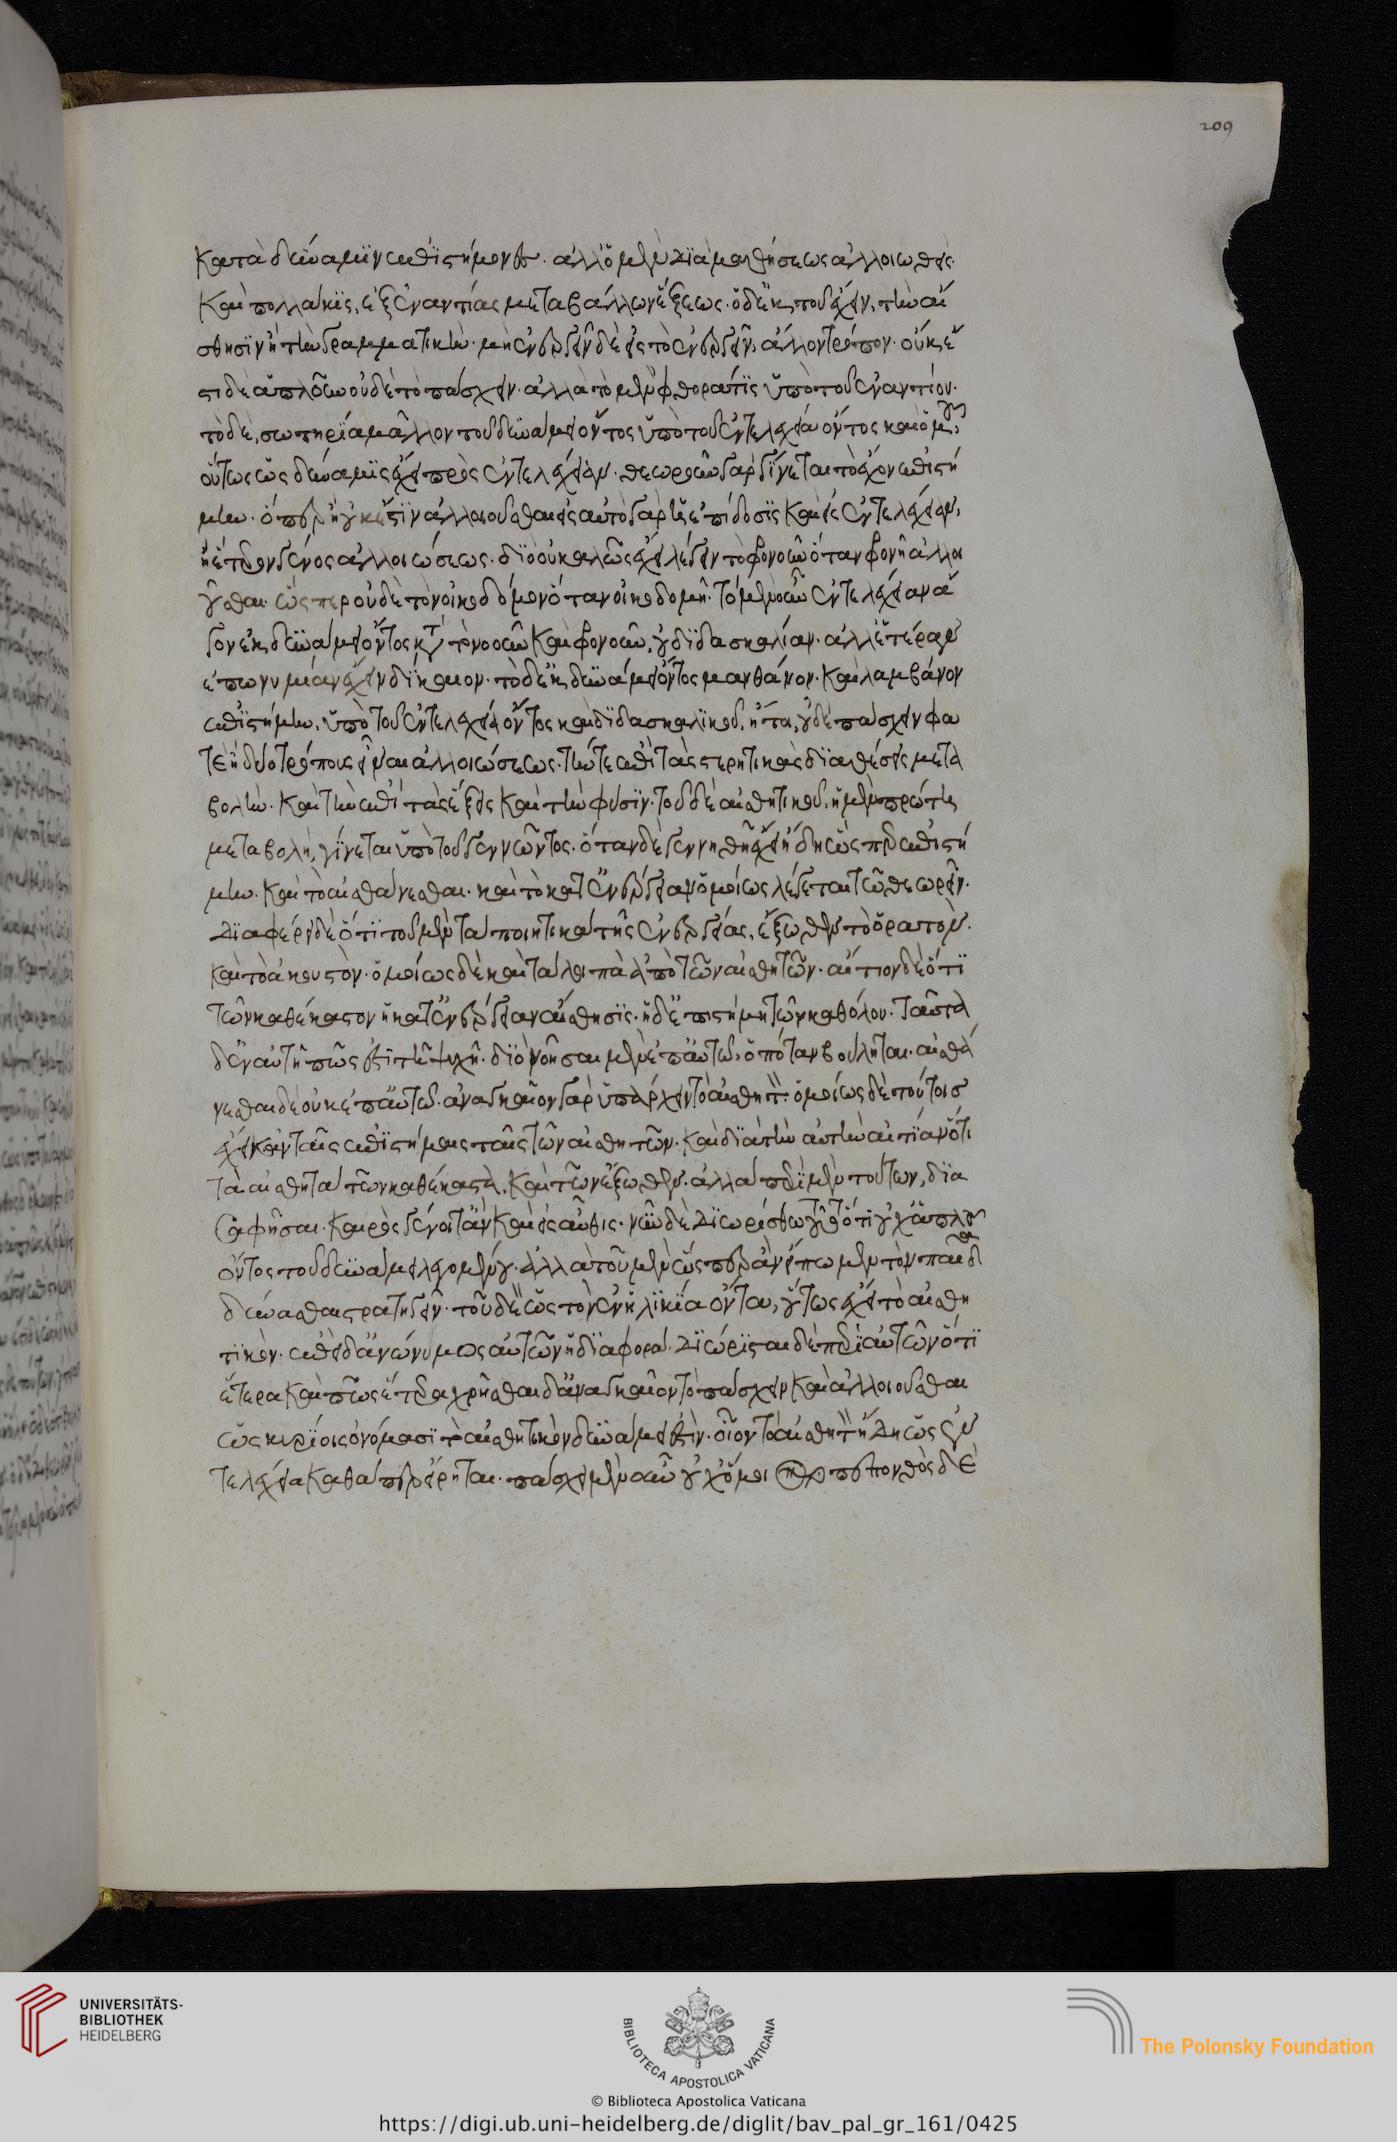 209
κατὰ δύναμιν ἐπιστήμονες. ἀλλ' ὁ μὲν διὰ μαθήσεως ἀλλοιωθεὶς·
καὶ πολλάκις, ἐξ ἐναντίας μεταβάλλων ἕξεως. ὁ δ' ἐκ τοῦ ἔχειν, τὴν αἴ
σθησιν ἢ τὴν γραμματικὴν. μὴ ἐνεργεῖν δὲ εἰς τὸ ἐνεργεῖν, ἄλλον τρόπον. οὐκ ἔ
στι δ' ἁπλοῦν οὐδὲ τὸ πάσχειν. ἀλλὰ τὸ μὲν φθορά τις ὑπὸ τοῦ ἐναντίου.
τὸ δὲ, σωτηρία μᾶλλον τοῦ δυνάμει ὄντος ὑπὸ τοῦ ἐντελεχεία ὄντος καὶ ὁμοίου,
οὕτως ὡς δύναμις ἔχει πρὸς ἐντελέχειαν. θεωροῦν γὰρ γίνεται τὸ ἔχον ἐπιστή
μην. ὅπερ ἢ οὐκ ἔστιν ἀλλοιοῦσθαι εἰς αὐτὸ γὰρ ἡ ἐπίδοσις καὶ εἰς ἐντελέχειαν,
ἢ ἕτερον γένος ἀλλοιώσεως. διὸ οὐ καλῶς ἔχει λέγειν τὸ φρονοῦν ὅταν φρονῆ ἀλλοι
οῦσθαι. ὥσπερ οὐδὲ τὸν οἰκοδόμον ὅταν οἰκοδομῆ. τὸ μὲν οὖν ἐντελέχειαν ἄ
γον ἐκ δυνάμει ὄντος κατὰ τὸ νοοῦν καὶ φρονοῦν, οὐ διδασκαλίαν. ἀλλ' ἑτέραν
ἐπωνυμίαν ἔχειν δίκαιον. τὸ δ' ἐκ δυνάμει ὄντος μανθάνον. καὶ λαμβάνον
ἐπιστήμην. ὑπὸ τοῦ ἐντελεχεία ὄντος καὶ διδασκαλικοῦ, ἤτοι, οὐδὲ πάσχειν φα
τέ ἢ δύο τρόπους εἶναι ἀλλοιώσεως. τήν τε ἐπὶ τὰς στερητικὰς διαθέσεις μετα
βολὴν. καὶ τὴν ἐπὶ τὰς ἕξεις καὶ τὴν φύσιν. τοῦ δὲ αἰσθητικοῦ, ἡ μὲν πρώτη
μεταβολὴ, γίνεται ὑπὸ τοῦ γεννῶντος. ὅταν δὲ γεννηθῆ ἔχει ἤδη ὥσπερ ἐπιστή
μην. καὶ τὸ αἰσθάνεσθαι. καὶ τὸ κατ' ἐνέργειαν ὁμοίως λέγεται τῶ θεωρεῖν.
διαφέρει δὲ ὅτι τοῦ μὲν τὰ ποιητικὰ τῆς ἐνεργείας, ἔξωθεν τὸ ὁρατὸν.
καὶ τὸ ἀκουστὸν. ὁμοίως δὲ καὶ τὰ λοιπὰ ἀπὸ τῶν αἰσθητῶν. αἴτιον δὲ ὅτι
τῶν καθέκαστον ἡ κατ' ἐνέργειαν αἴσθησις. ἡ δ' ἐπιστήμη τῶν καθόλου. ταῦτα
δ' ἐν αὐτῆ πῶς ἐστι τῆ ψυχῆ. διὸ νοῆσαι μὲν ἐπ' αὐτῶ, ὁπόταν βούληται. αἰσθά
νεσθαι δὲ οὐκ ἐπ' αὐτῶ. ἀναγκαῖον γὰρ ὑπάρχειν τὸ αἰσθητὸν. ὁμοίως δὲ τούτοις
ἔχει κἀν ταῖς ἐπιστήμαις ταῖς τῶν αἰσθητῶν. καὶ διὰ τὴν αὐτὴν αἰτίαν ὅτι
τὰ αἰσθητὰ τῶν καθέκαστα, καὶ τῶν ἔξωθεν. ἀλλὰ περὶ μὲν τούτων, δια
σαφῆσαι. καιρὸς γένοιτ' ἂν καὶ εἰς αὖθις. νῦν δὲ διωρίσθω τοσοῦτον ὅτι οὐχ ἁπλοῦ
ὄντος τοῦ δυνάμει λεγομένου. ἀλλὰ τοῦ μὲν ὥσπερ ἂν εἴπωμεν τὸν παῖδα
δύνασθαι στρατηγεῖν. τοῦ δὲ ὡς τὸν ἐν ἡλικία ὄντα, οὕτως ἔχει τὸ αἰσθη
τικὸν. ἐπεὶ δ' ἀνώνυμος αὐτῶν ἡ διαφορὰ. διώρισται δὲ περὶ αὐτῶν ὅτι
ἕτερα καὶ πῶς ἕτερα χρῆσθαι δ' ἀναγκαῖον τὸ πάσχειν καὶ ἀλλοιοῦσθαι
ὡς κυρίοις ὀνόμασι τὸ αἰσθητικὸν δυνάμει ἐστὶν. οἷον τὸ αἰσθητὸν ἤδη ὡς ἐν
τελεχεία καθάπερ εἴρηται. πάσχει μὲν οὖν οὐχ ὅμοιον ὂν πεπονθὸς δὲ
UNIVERSITÄTS-
BIBLIOTHEK
HEIDELBERG
BIBLIOTECA APOSTOLICA VATICANA
The Polonsky Foundation
© Biblioteca Apostolica Vaticana
https://digi.ub.uni-heidelberg.de/diglit/bav_pal_gr_161/0425